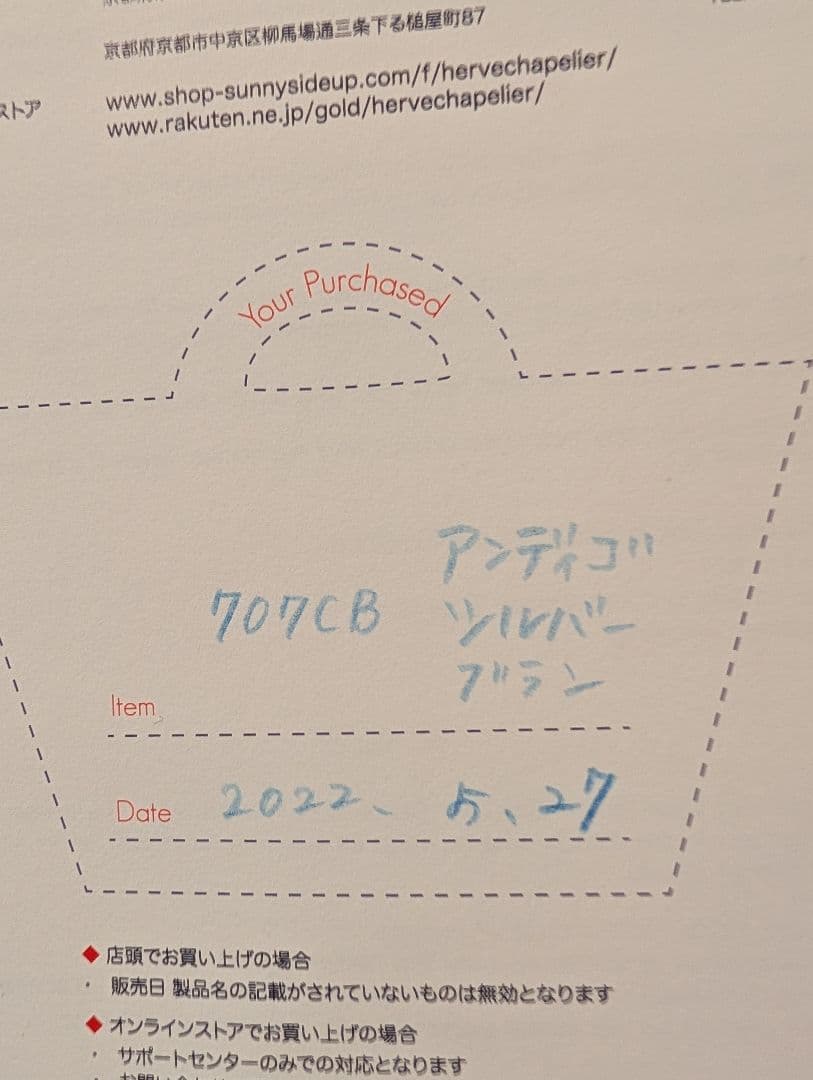 京都府京都市中京区柳馬場通三条下る槌屋町87
ストア
www.shop-sunnysideup.com/f/hervechapelier/
www.rakuten.ne.jp/gold/hervechapelier/
Your Purchased
707CB
アンディゴ
シルバー
ブラン
Item
Date 2022、5、27
◆ 店頭でお買い上げの場合
・ 販売日 製品名の記載がされていないものは無効となります
◆ オンラインストアでお買い上げの場合
・ サポートセンターのみでの対応となります